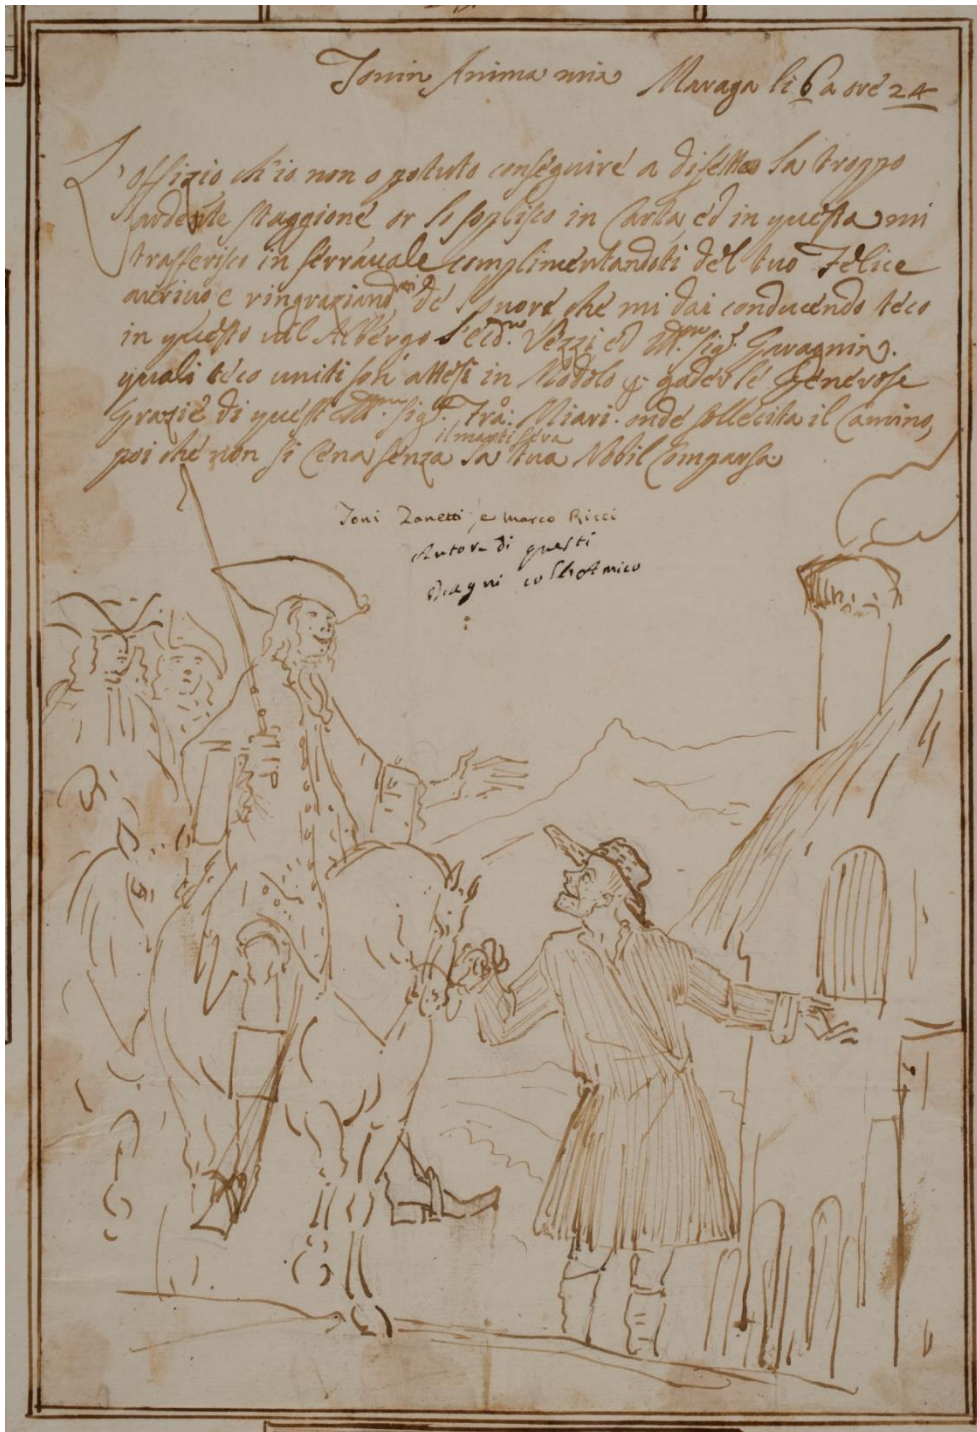 Tonin Anima mia Maraga li 6 a ore 24
L'offizio ch'io non o potuto conseguire a difetto la troppo
ardente staggione or lo soplisco in Carta ed in questa mi
trasferisco in serravale complimentandoti del tuo Felice
arrivo e ringraziand de l'onore che mi dai conducendo teco
in questo vil Albergo l'ecc. Vezzi ed Ill. sig. Gavagnin.
quali teco uniti son attesi in Modolo p. goder le Generose
Grazie di quest' Ill. Sig. Frà. Miari. onde sollecita il Camino,
il marti sera
poi che non si Cena senza la tua Nobil Comparsa
Toni Zanetti, e Marco Ricci
Autore di questi
Disegni co l'Amico